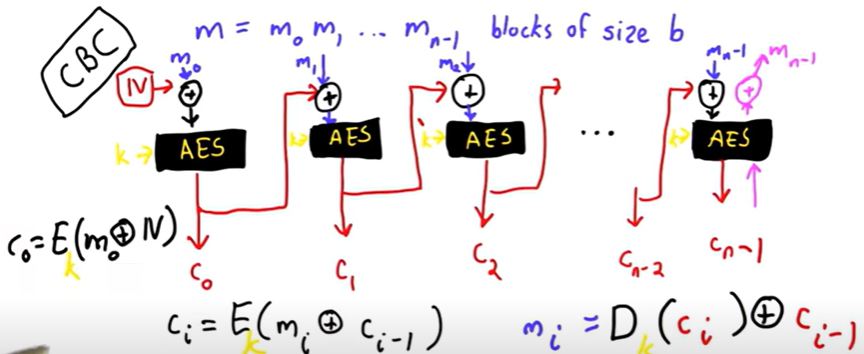 CBC
m = m₀ m₁ ... mₙ₋₁ blocks of size b
IV
m₀
m₁
m₂
mₙ₋₁
mₙ₋₁
+ + + + +
...
k → AES
k → AES
k → AES
k → AES
c₀ = E_k(m₀ ⊕ IV)
c₀
c₁
c₂
cₙ₋₂
cₙ₋₁
cᵢ = E_k(mᵢ ⊕ cᵢ₋₁)
mᵢ = D_k(cᵢ) ⊕ cᵢ₋₁